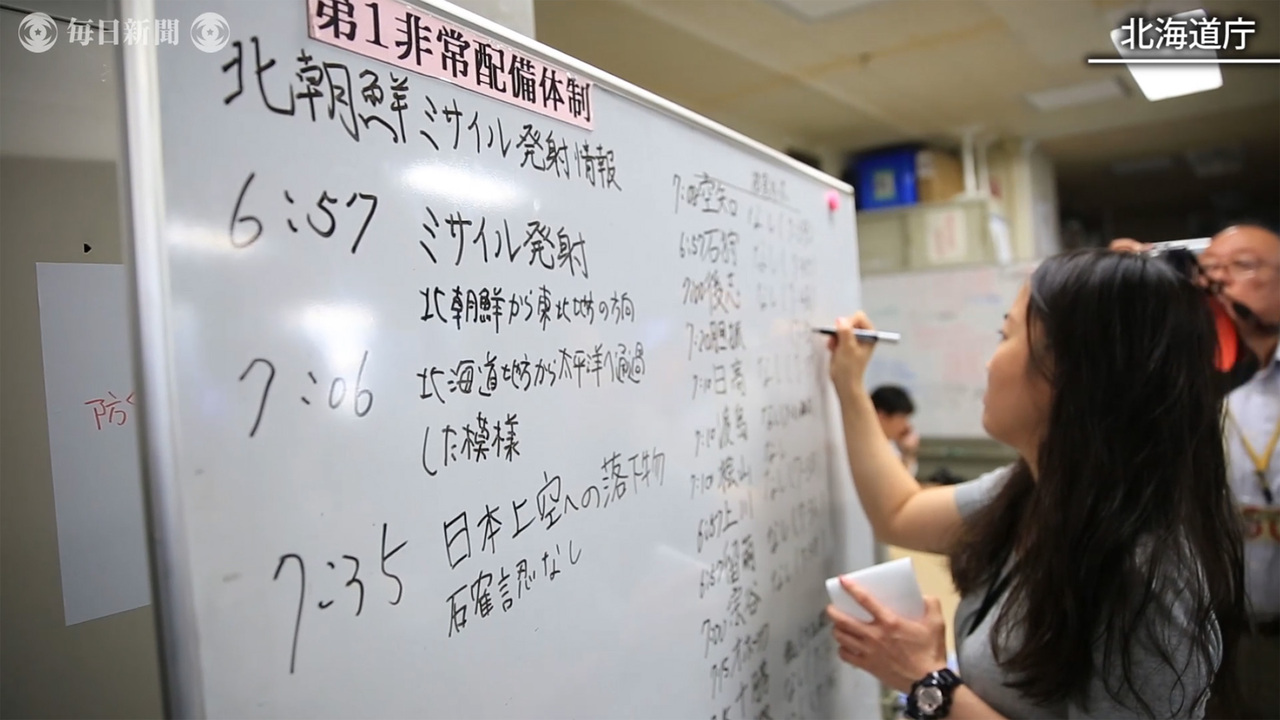 毎日新聞
北海道庁
第1非常配備体制
北朝鮮ミサイル発射情報
6:57 ミサイル発射
北朝鮮から東北地方の方向
7:06 北海道地方から太平洋へ通過
した模様
7:35 日本上空への落下物
確認なし
7:08 空知 なし
6:57 石狩 なし
7:00 後志 なし
7:20 胆振
7:10 日高 なし
7:10 渡島 なし
7:10 檜山 なし
6:57 上川 なし
6:57 留萌 なし
7:00 宗谷
7:15 オホーツク
十勝
防